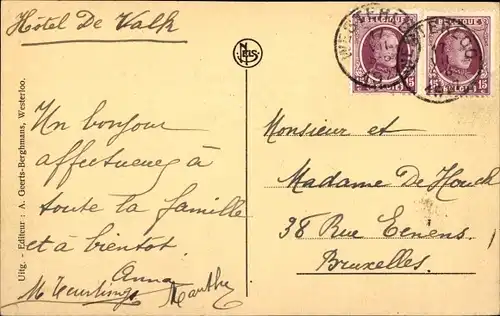 Hôtel De Valk
Uitg. - Editeur : A. Geerts-Berghmans, Westerloo.
Nels
BELGIQUE
15 BELGIË 15
BELGIQUE
15 BELGIË 15
WESTERLOO
WESTERLOO
Un bonjour
affectueux à
toute la famille
et à bientot.
Anna
M
Marthe
Monsieur et
Madame De
38 Rue Eenens.
Bruxelles.